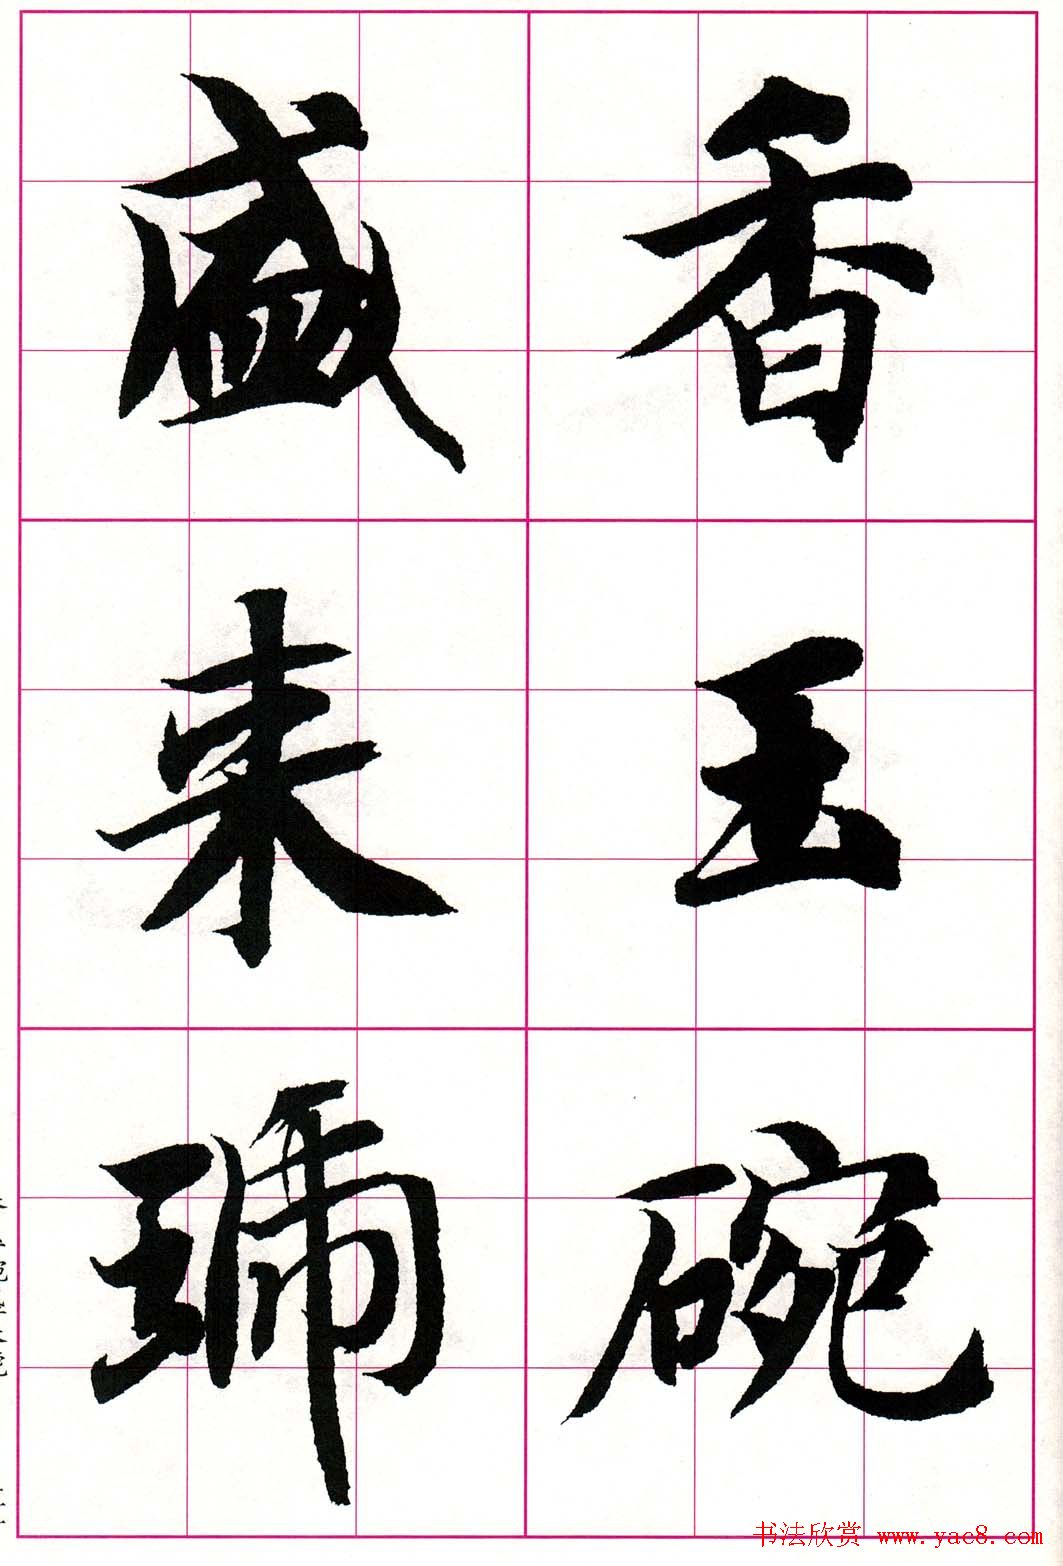 香玉碗
盛来琥
书法欣赏 www.yac8.com